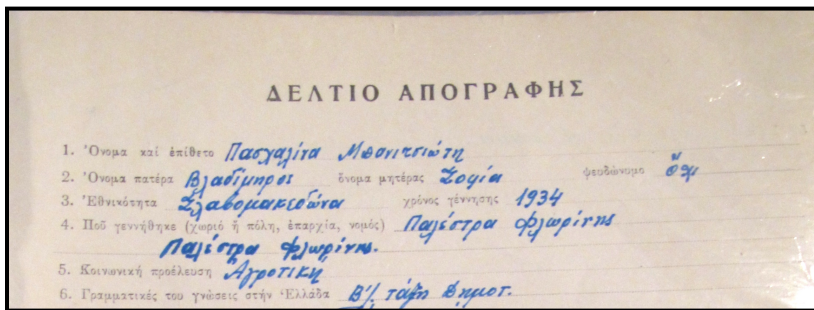 ΔΕΛΤΙΟ ΑΠΟΓΡΑΦΗΣ
1. Ὄνομα καί ἐπίθετο Πασχαλίνα Μπανιτσιώτη
2. Ὄνομα πατέρα Βλαδίμηρος ὄνομα μητέρας Σοφία ψεοδώνομο ὄχι
3. Ἐθνικότητα Σλαβομακεδόνα χρόνος γέννησης 1934
4. Ποῦ γεννήθηκε (χωριό ἤ πόλη, ἐπαρχία, νομός) Παλέστρα Φλωρίνης
Παλέστρα Φλωρίνης.
5. Κοινωνική προέλευση Ἀγροτική
6. Γραμματικές του γνώσεις στήν Ἑλλάδα Β΄/ τάξη Δημοτ.